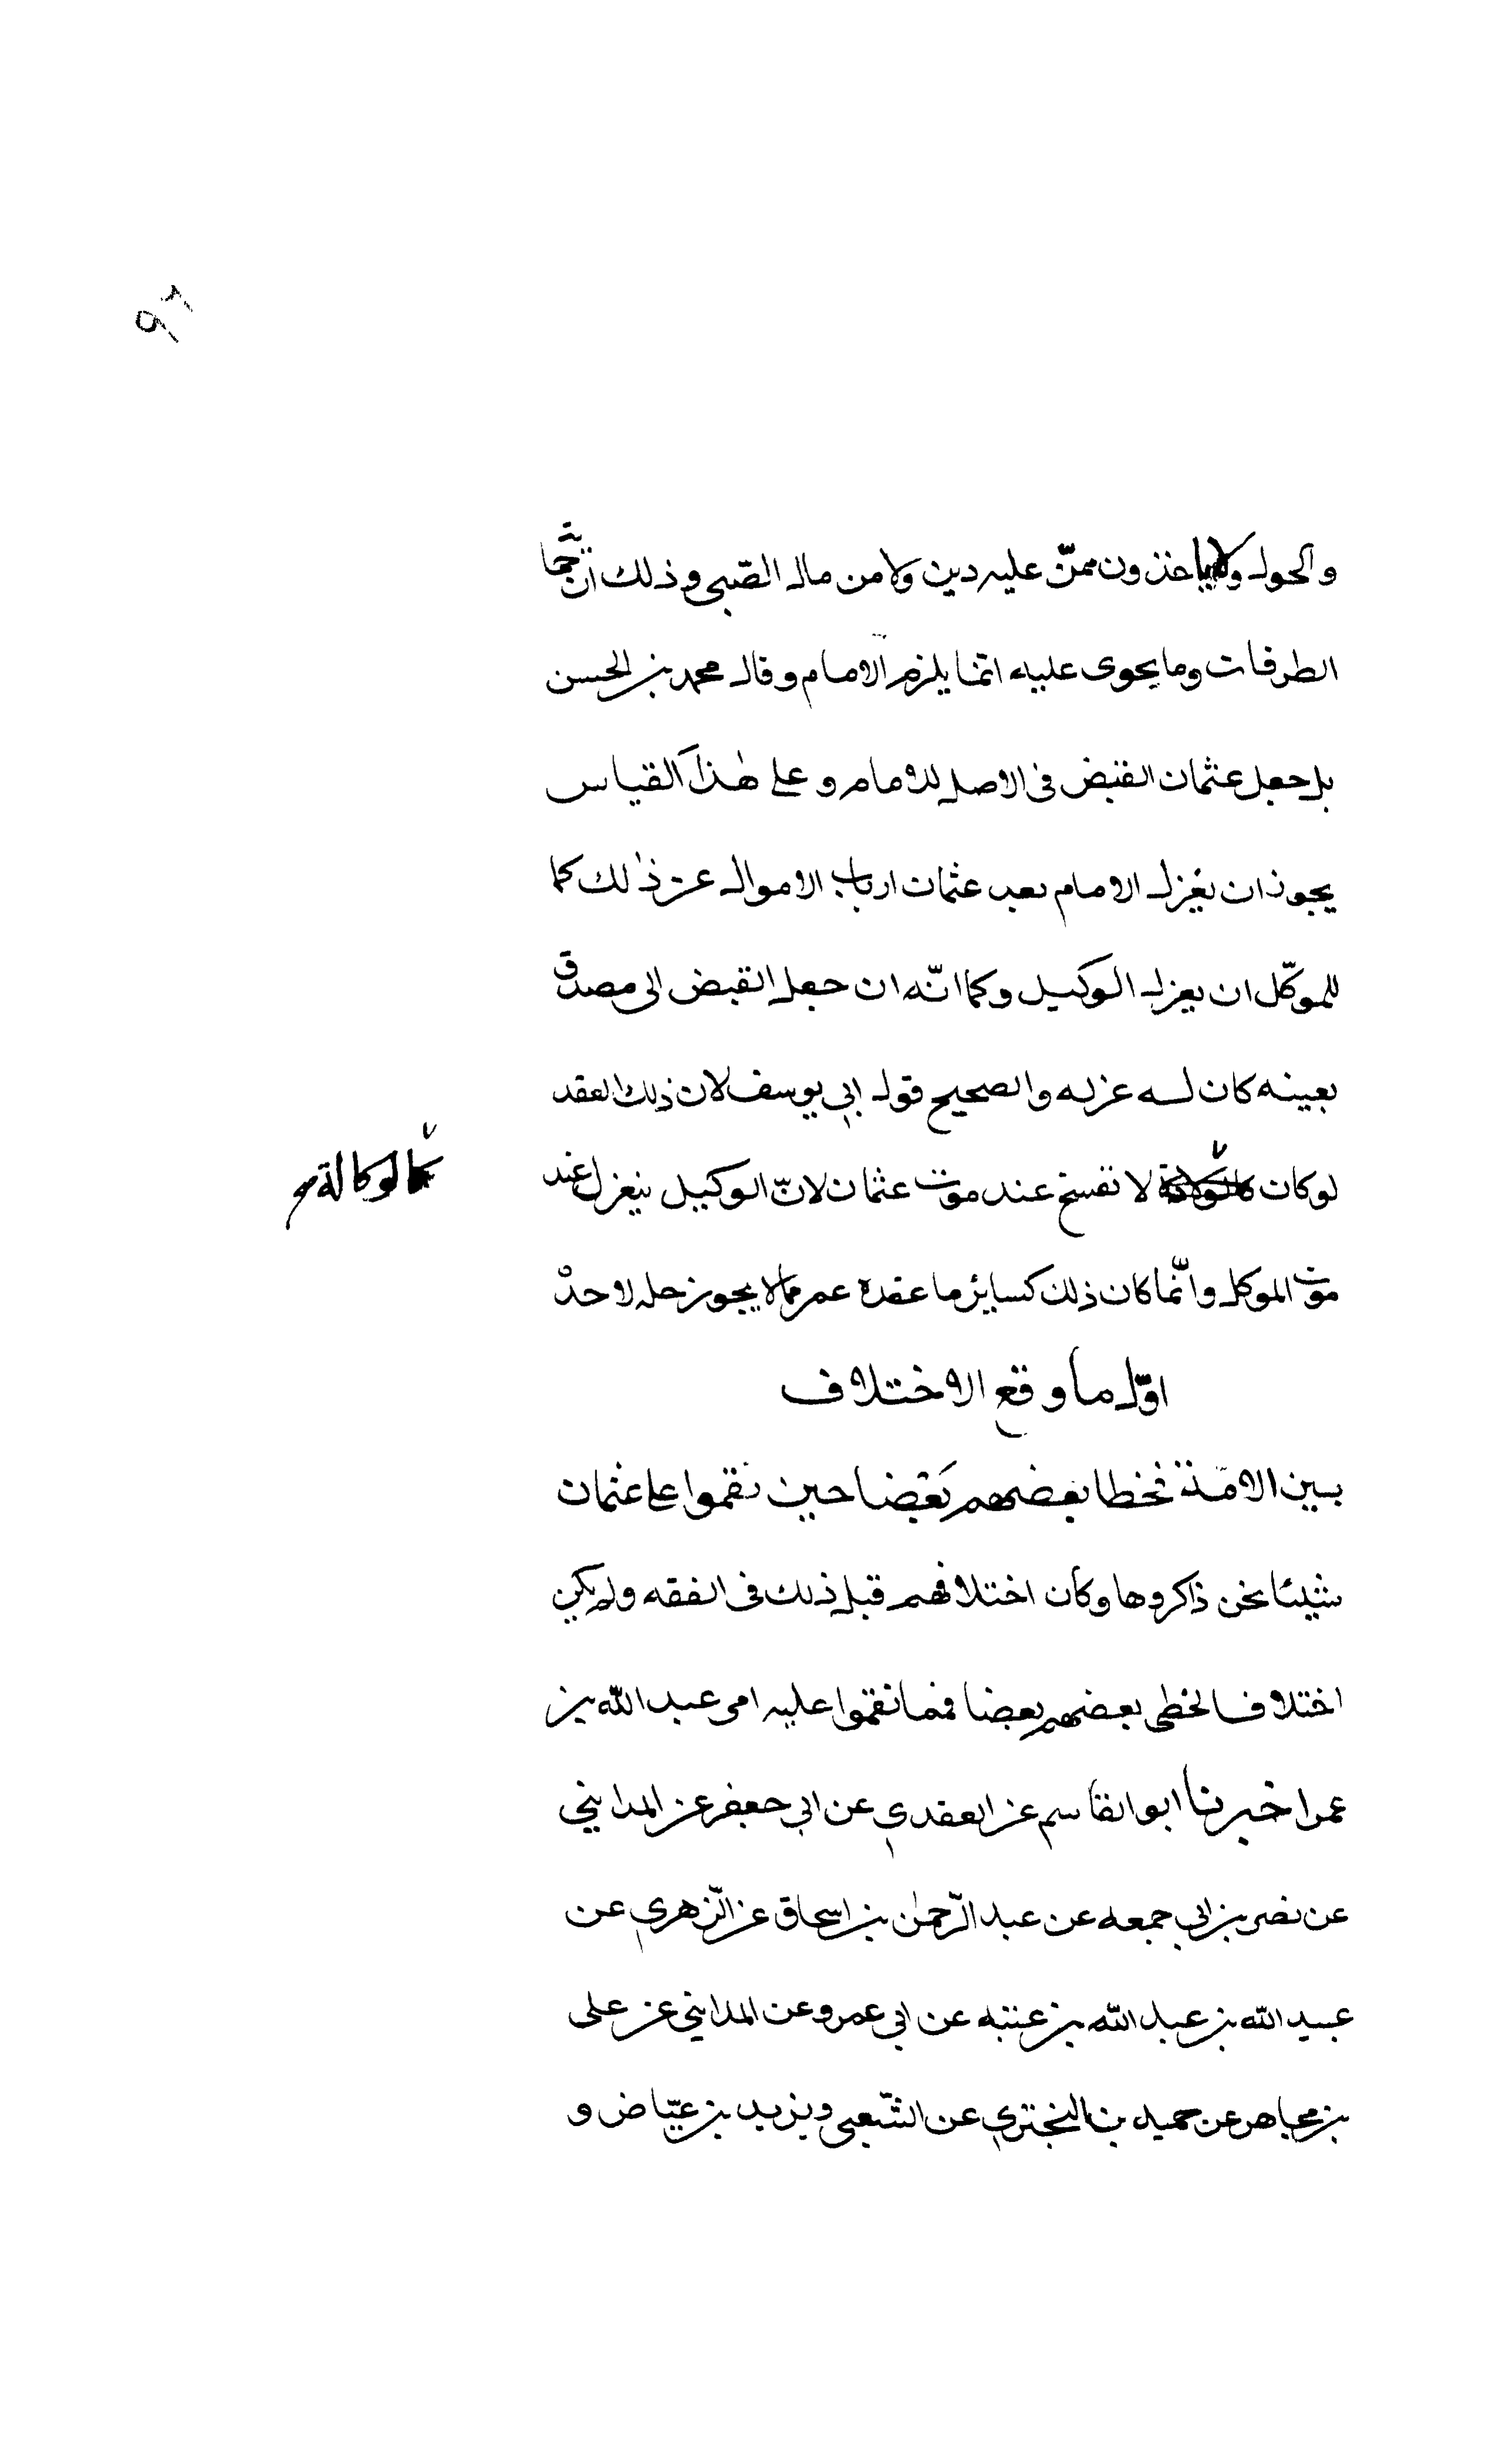 ٩٢
والحول ولا ياخذون ممّن عليه دين ولا من مال الصّبى وذلك ان
الطرقات وما يحوى عليه انّما يلزم الامام وقال محمد بن الحسن
بل جعل عثمان القبض فى الاصل للامام وعلى هٰذا القياس
يجوز ان يعزل الامام بعد عثمان ارباب الاموال عن ذٰلك كما
للموكّل ان يعزل الوكيل وكما انّه ان جعل القبض الى مصدق
بعينه كان له عزله والصحيح قول ابي يوسف لان ذلك العقد
لو كان لا نفسخ عند موت عثمان لانّ الوكيل ينعزل عند
كالوكالة
موت الموكل وانّما كان ذلك كسائر ما عقده عمر مما لا يجوز حله لاحد
اوّل ما وقع الاختلاف
بين الامّة فخطا بعضهم بعضا حين نقموا على عثمان
شيئا نحن ذاكروها وكان اختلافهم قبل ذلك فى الفقه ولم يكن
اختلاف الخطى بعضهم بعضا فمما نقموا عليه امر عبد الله بن
عمر اخبرنا ابو القاسم عن العقدي عن ابي جعفر عن المدايني
عن نصر بن ابي جمعه عن عبد الرّحمٰن بن اسحاق عن الزّهري عن
عبيد الله بن عبد الله بن عتبه عن ابي عمرو عن المدايني عن على
بن مجاهد عن حميد بن البختري عن الشّعبي ويزيد بن عيّاض و